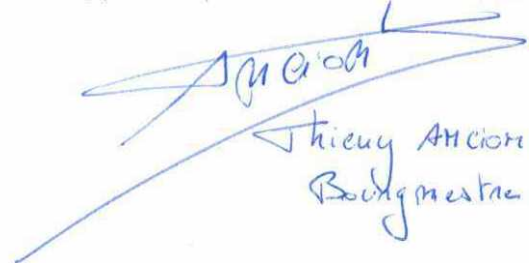 Ancion
Thierry Ancion
Bourgmestre